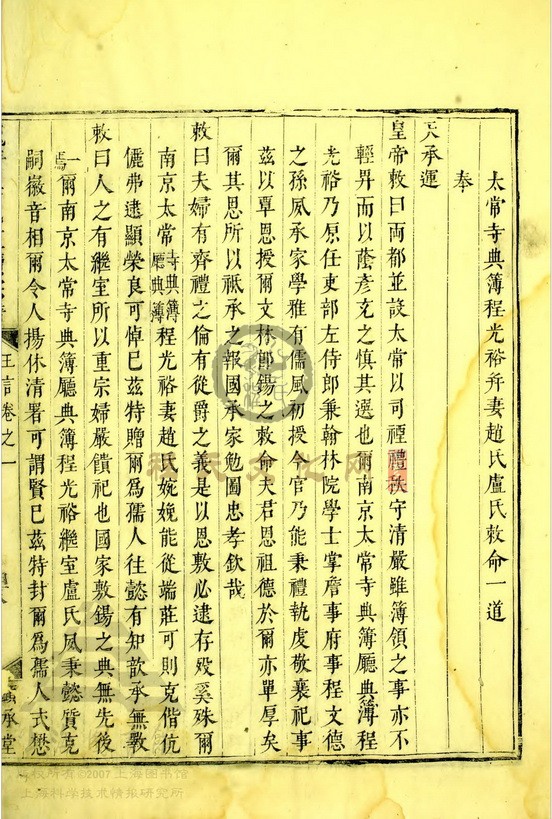 太常寺典簿程光裕并妻趙氏盧氏敕命一道
奉
天承運
皇帝敕曰兩都並設太常以司禋禮秩守清嚴雖簿領之事亦不
輕畀而以蔭彥充之慎其選也爾南京太常寺典簿廳典簿程
光裕乃原任吏部左侍郎兼翰林院學士掌詹事府事程文德
之孫夙承家學雅有儒風初授今官乃能秉禮執虔敬襄祀事
茲以覃恩授爾文林郎錫之敕命夫君恩祖德於爾亦單厚矣
爾其思所以祇承之報國承家勉圖忠孝欽哉
敕曰夫婦有齊禮之倫有從爵之義是以恩敷必逮存歿奚殊爾
南京太常寺典簿廳典簿程光裕妻趙氏婉娩能從端莊可則克偕伉
儷弗逮顯榮良可悼已茲特贈爾爲孺人往懿有知歆承無斁
敕曰人之有繼室所以重宗婦嚴饋祀也國家敷錫之典無先後
焉一爾南京太常寺典簿廳典簿程光裕繼室盧氏夙秉懿質克
嗣徽音相爾令人揚休清署可謂賢已茲特封爾爲孺人式懋
王言卷之一
承堂
版权所有©2007上海图书馆
上海科学技术情报研究所